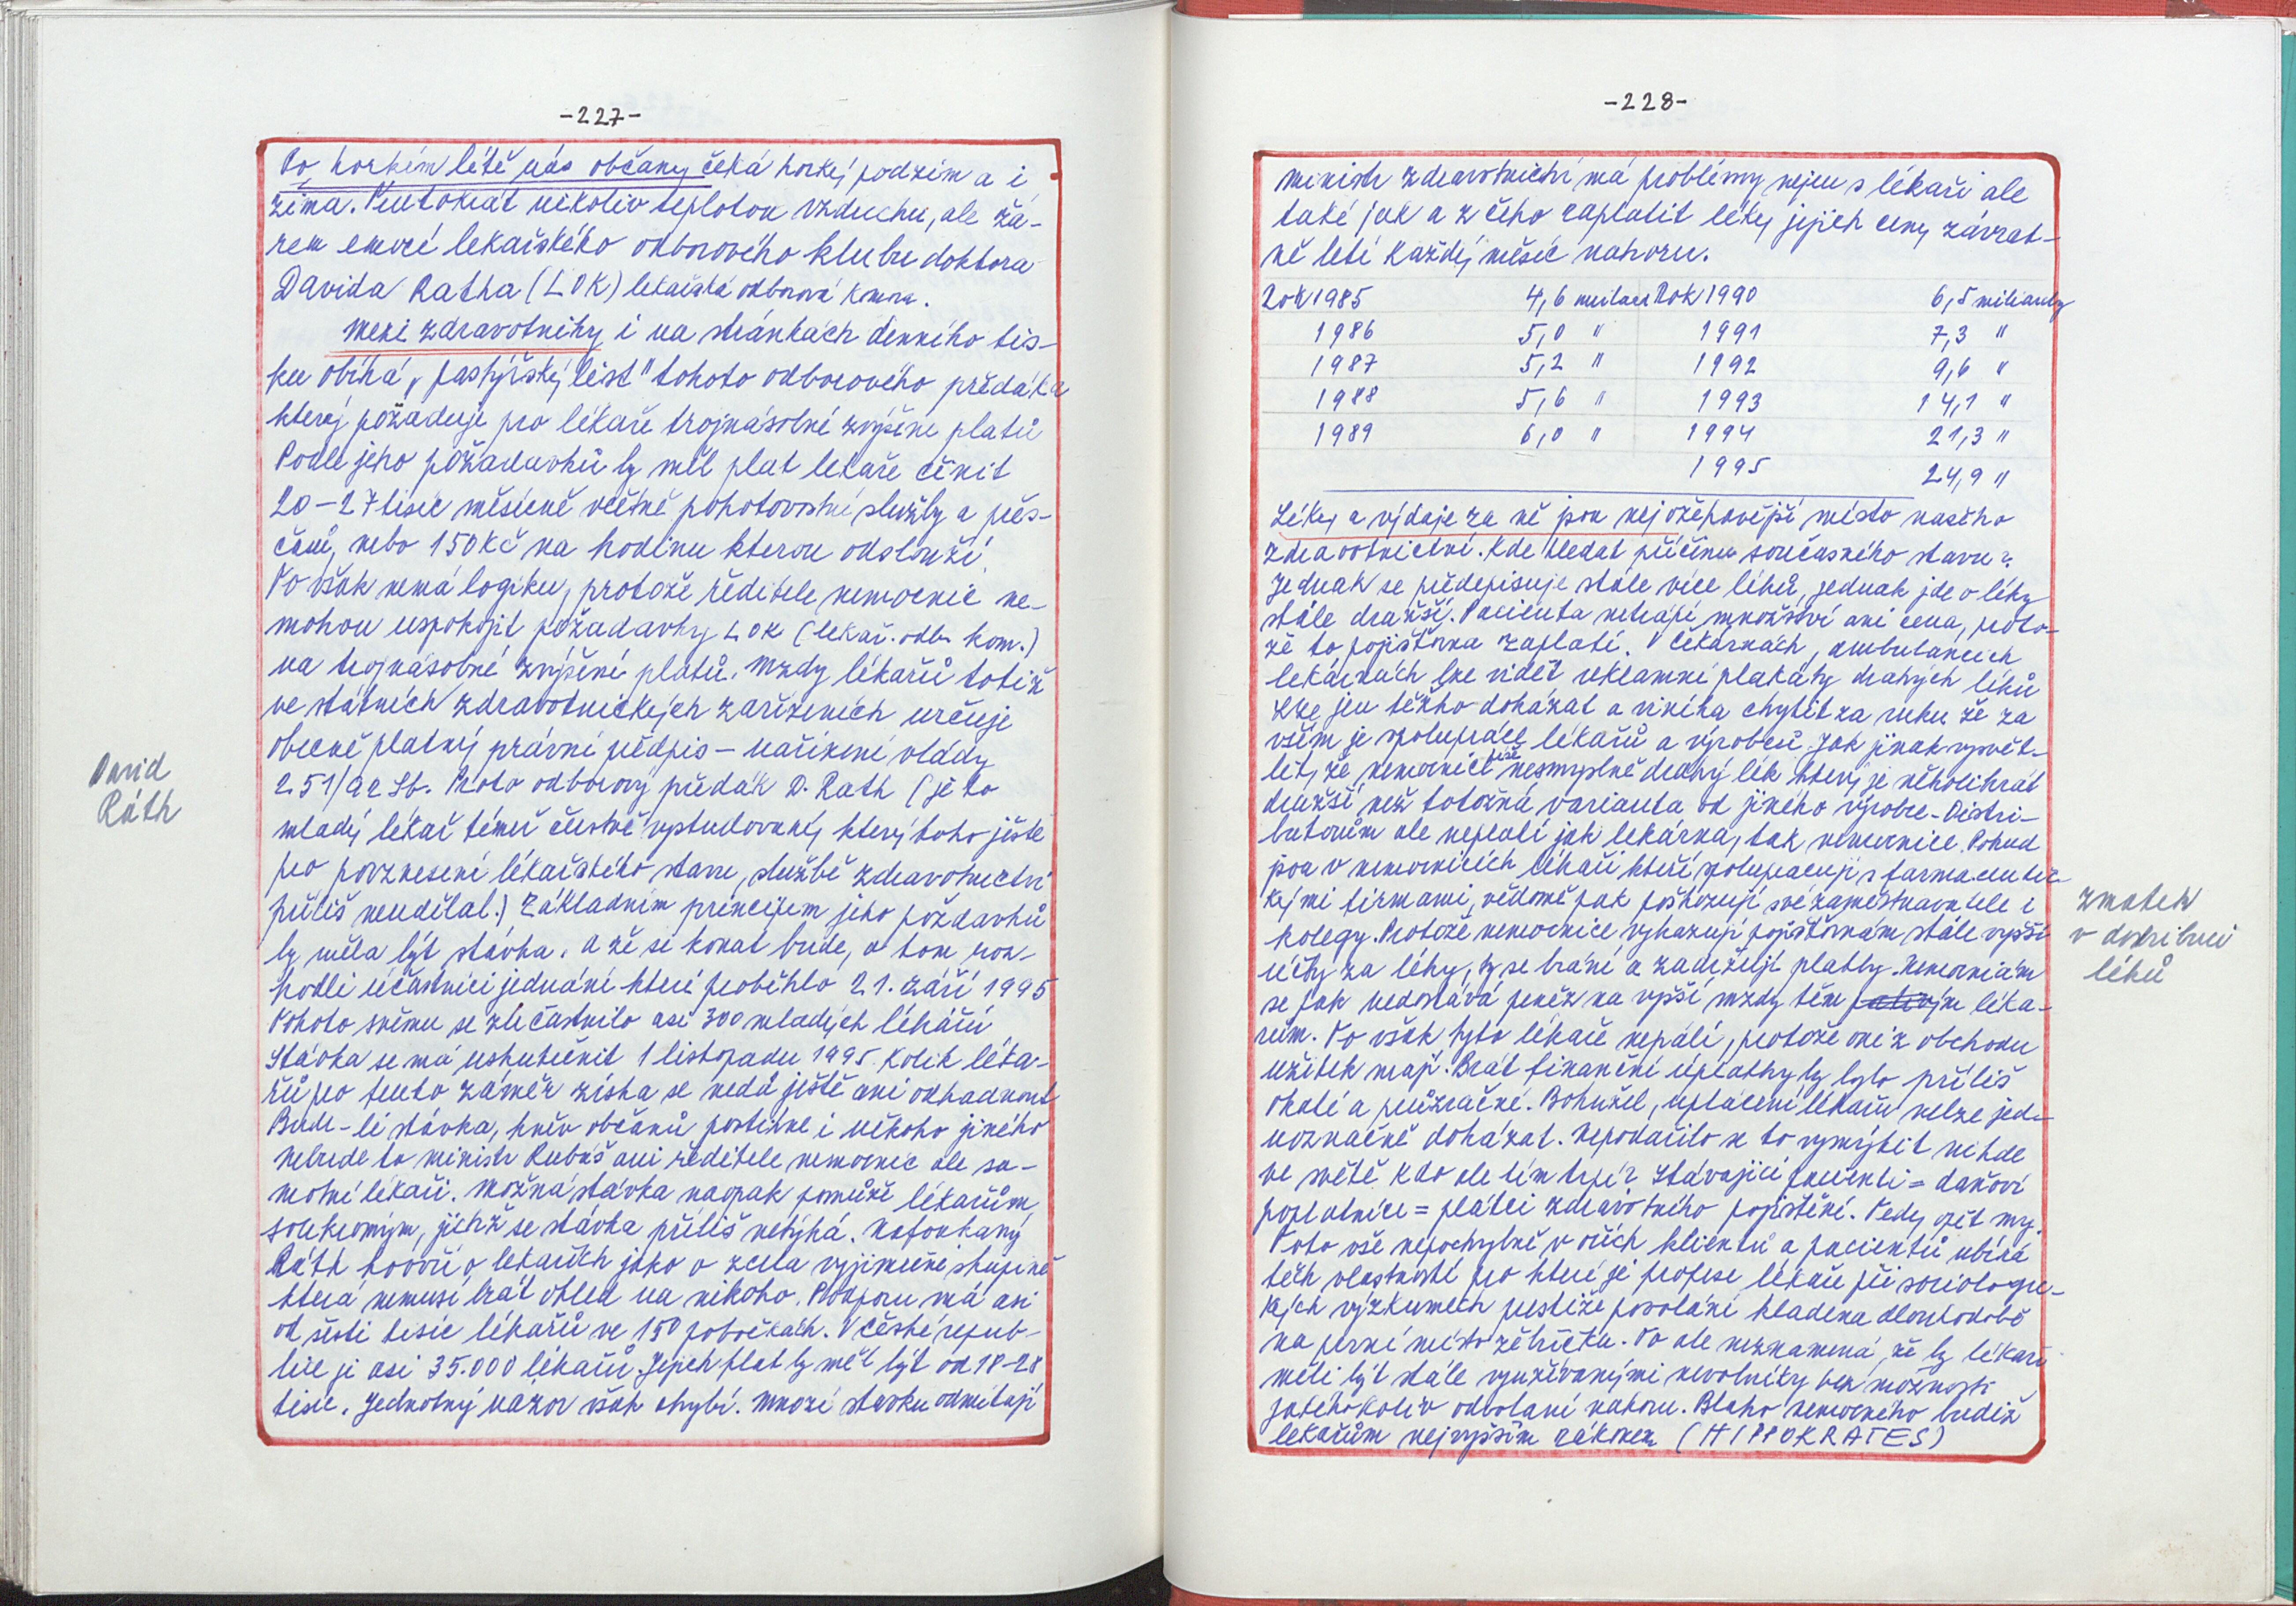 -227-
Po horkém létě nás občany čeká horký podzim a i
zima. Tentokrát nikoliv teplotou vzduchu, ale žá-
rem emocí lékařského odborového klubu doktora
Davida Ratha (LOK) lékařská odborová komora.
Mezi zdravotníky i na stránkách denního tis-
ku obíhá „pastýřský list" tohoto odborového předáka
který požaduje pro lékaře trojnásobné zvýšení platů
Podle jeho požadavků by měl plat lékaře činit
20-27 tisíc měsíčně včetně pohotovostní služby a přes-
časů, nebo 150 Kč na hodinu kterou odslouží.
To však nemá logiku, protože ředitele nemocnic ne-
mohou uspokojit požadavky LOK (lékař. odb. kom.)
na trojnásobné zvýšení platů. Mzdy lékařů totiž
ve státních zdravotnických zařízeních určuje
obecně platný právní předpis - nařízení vlády
251/92 Sb. Proto odborový předák D. Rath (je to
mladý lékař téměř čerstvě vystudovaný který toho ještě
pro povznesení lékařského stavu, službě zdravotnictví
příliš neudělal.) Základním principem jeho požadavků
by měla být stávka. A že se konat bude, o tom roz-
hodli účastníci jednání které proběhlo 21. září 1995
Tohoto sněmu se zúčastnilo asi 300 mladých lékařů
Stávka se má uskutečnit 1 listopadu 1995. Kolik léka-
řů pro tento záměr získa se nedá ještě ani odhadnout
Bude-li stávka, hněv občanů postihne i někoho jiného
Nebude to ministr Rubáš ani ředitele nemocnic ale sa-
motní lékaři. Možná stávka naopak pomůže lékařům
soukromým, jichž se stávka příliš netýká. Nafoukaný
Ráth hovoří o lékařích jako o zcela vyjímečné skupině
která nemusí brát ohled na nikoho. Podporu má asi
od šesti tisíc lékařů ve 150 pobočkách. V České repub-
lice je asi 35.000 lékařů. Jejich plat by měl být od 18-28
tisíc. Jednotný nazor však chybí. Mnozí stavku odmítají
David
Ráth
-228-
Ministr zdravotnictví má problémy nejen s lékaři ale
také jak a z čeho zaplatit léky jejich ceny závrat-
ně letí každý měsíc nahoru.
Rok 1985 4,6 miliard Rok 1990 6,5 miliardy
1986 5,0 " 1991 7,3 "
1987 5,2 " 1992 9,6 "
1988 5,6 " 1993 14,1 "
1989 6,0 " 1994 21,3 "
1995 24,9 "
Léky a výdaje za ně jsou nejožehavější místo našeho
zdravotnictví. Kde hledat příčinu současného stavu?
Jednak se předepisuje stále více léků, jednak jde o léky
stále dražší. Pacienta netrápí množství ani cena, proto-
že to pojišťovna zaplatí. V čekárnách, ambulancích
lékárnách lze vidět reklamní plakáty drahých léků
Lze jen těžko dokázat a viníka chytit za ruku že za
vším je spolupráce lékařů a výrobců. Jak jinak vysvět-
lit, že nemocnice nesmyslně drahý lék který je několikrát
dražší než totožná varianta od jiného výrobce. Distri-
butorům ale neplatí jak lékárna, tak nemocnice. Pokud
jsou v nemocnicích lékaři kteří spolupracují s farmaceutic-
kými firmami, vědomě pak poškozují své zaměstnavatele i
kolegy. Protože nemocnice vykazují pojišťovnám stále vyšší
účty za léky, ty se brání a zadržují platby. Nemocnicím
se pak nedostává peněz na vyšší mzdy těm léka-
řům. To však tyto lékaře nepálí, protože oni z obchodu
užitek mají. Brát finanční úplatky by bylo příliš
okaté a průzračné. Bohužel, uplácení lékařů nelze jed-
noznačně dokázat. Nepodařilo se to vymýtit nikde
ve světě. Kdo ale tím trpí? Stávající pacienti = daňoví
poplatníci = plátci zdravotního pojištění. Tedy opět my.
Toto vše nepochybně v očích klientů a pacientů ubírá
těch vlastností pro které je profese lékaře při sociologic-
kých výzkumech prestiže povolání kladena dlouhodobě
na první místo žebříčku. To ale neznamená, že by lékaři
měli být stále využívanými nevolníky bez možnosti
jakéhokoliv odvolaní nahoru. Blaho nemocného budiž
lékařům nejvyšším zákonem (HIPPOKRATES)
zmatek
v distribuci
léků